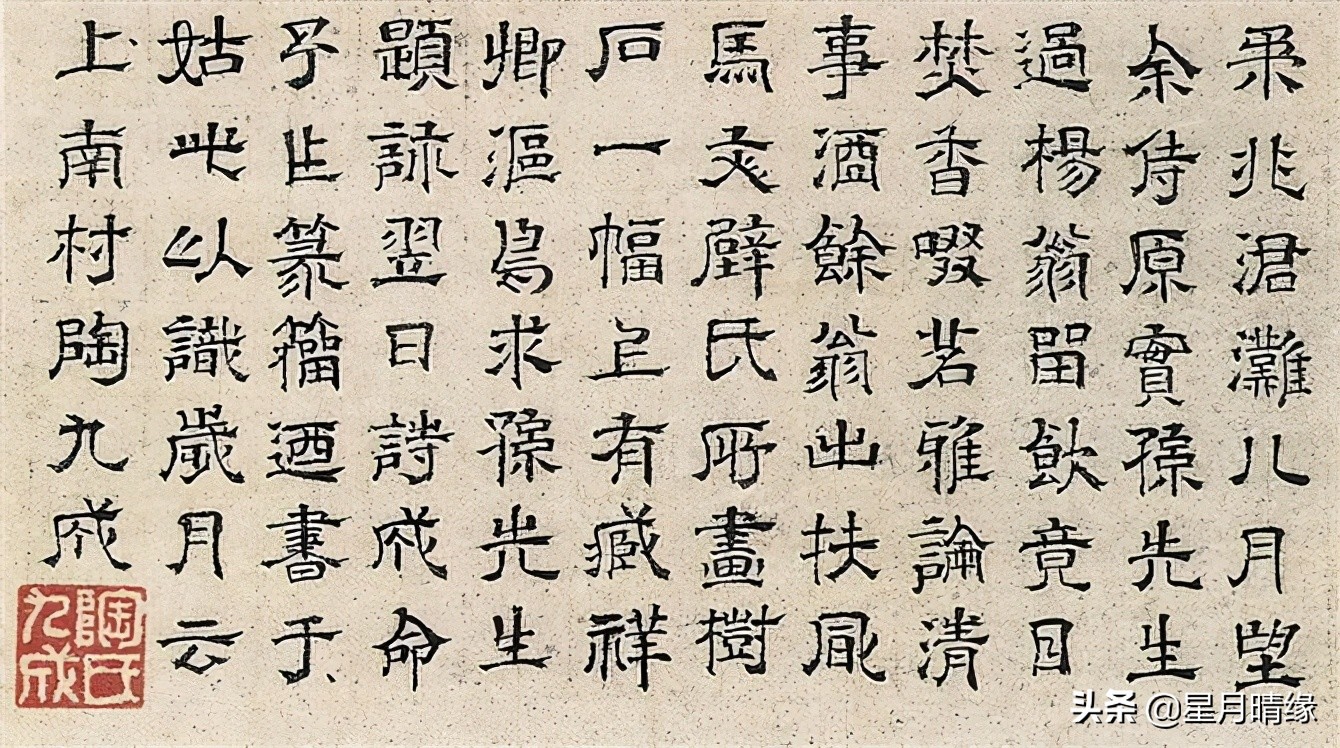 柔兆涒灘八月望
余侍原實孫先生
過楊翁留飲竟日
焚香啜茗雅論清
事酒餘翁出扶風
馬文璧氏所畫樹
石一幅上有臧祥
卿漚鳥求孫先生
題詠翌日詩成命
予乍篆籀迺書于
姑此以識歲月云
上南村陶九成
陶氏
九成
头条 @星月晴缘